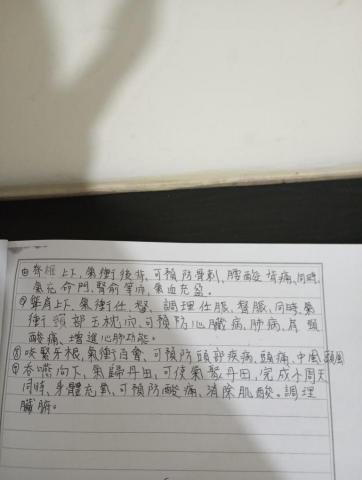 ⑥脊椎上下,氣衝後背,可預防骨刺,腰酸背痛,同時,
氣充命門,腎俞等穴,氣血充盈。
⑦聳肩上下,氣衝任、督、調理任脈,督脈,同時,氣
衝頸部玉枕穴,可預防心臟病,肺病,肩頸
酸痛、增進心肺功能。
⑧咬緊牙根,氣衝百會,可預防頭部疾病,頭痛,中風,
⑨吞嚥向下,氣歸丹田,可使氣聚丹田,完成小周天
同時,身體充氣,可預防酸痛,消除肌酸。調理
臟腑。